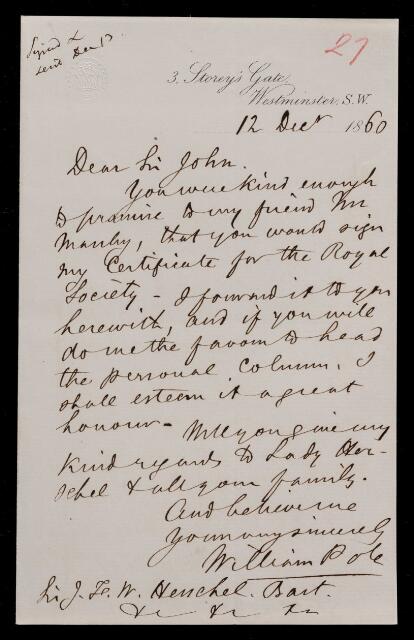 Signed &
sent Dec 13
27
3, Storey's Gate,
Westminster, S.W.
12 Decr 1860
Dear Sir John.
You were kind enough
to promise to my friend Mr
Manby, that you would sign
my Certificate for the Royal
Society - I forward it to you
herewith, and if you will
do me the favour to head
the personal column, I
shall esteem it a great
honour - Will you give my
kind regards to Lady Her-
schel & all your family.
And believe me
Yours very sincerely
William Pole
Sir J. F. W. Herschel Bart.
&c &c &c